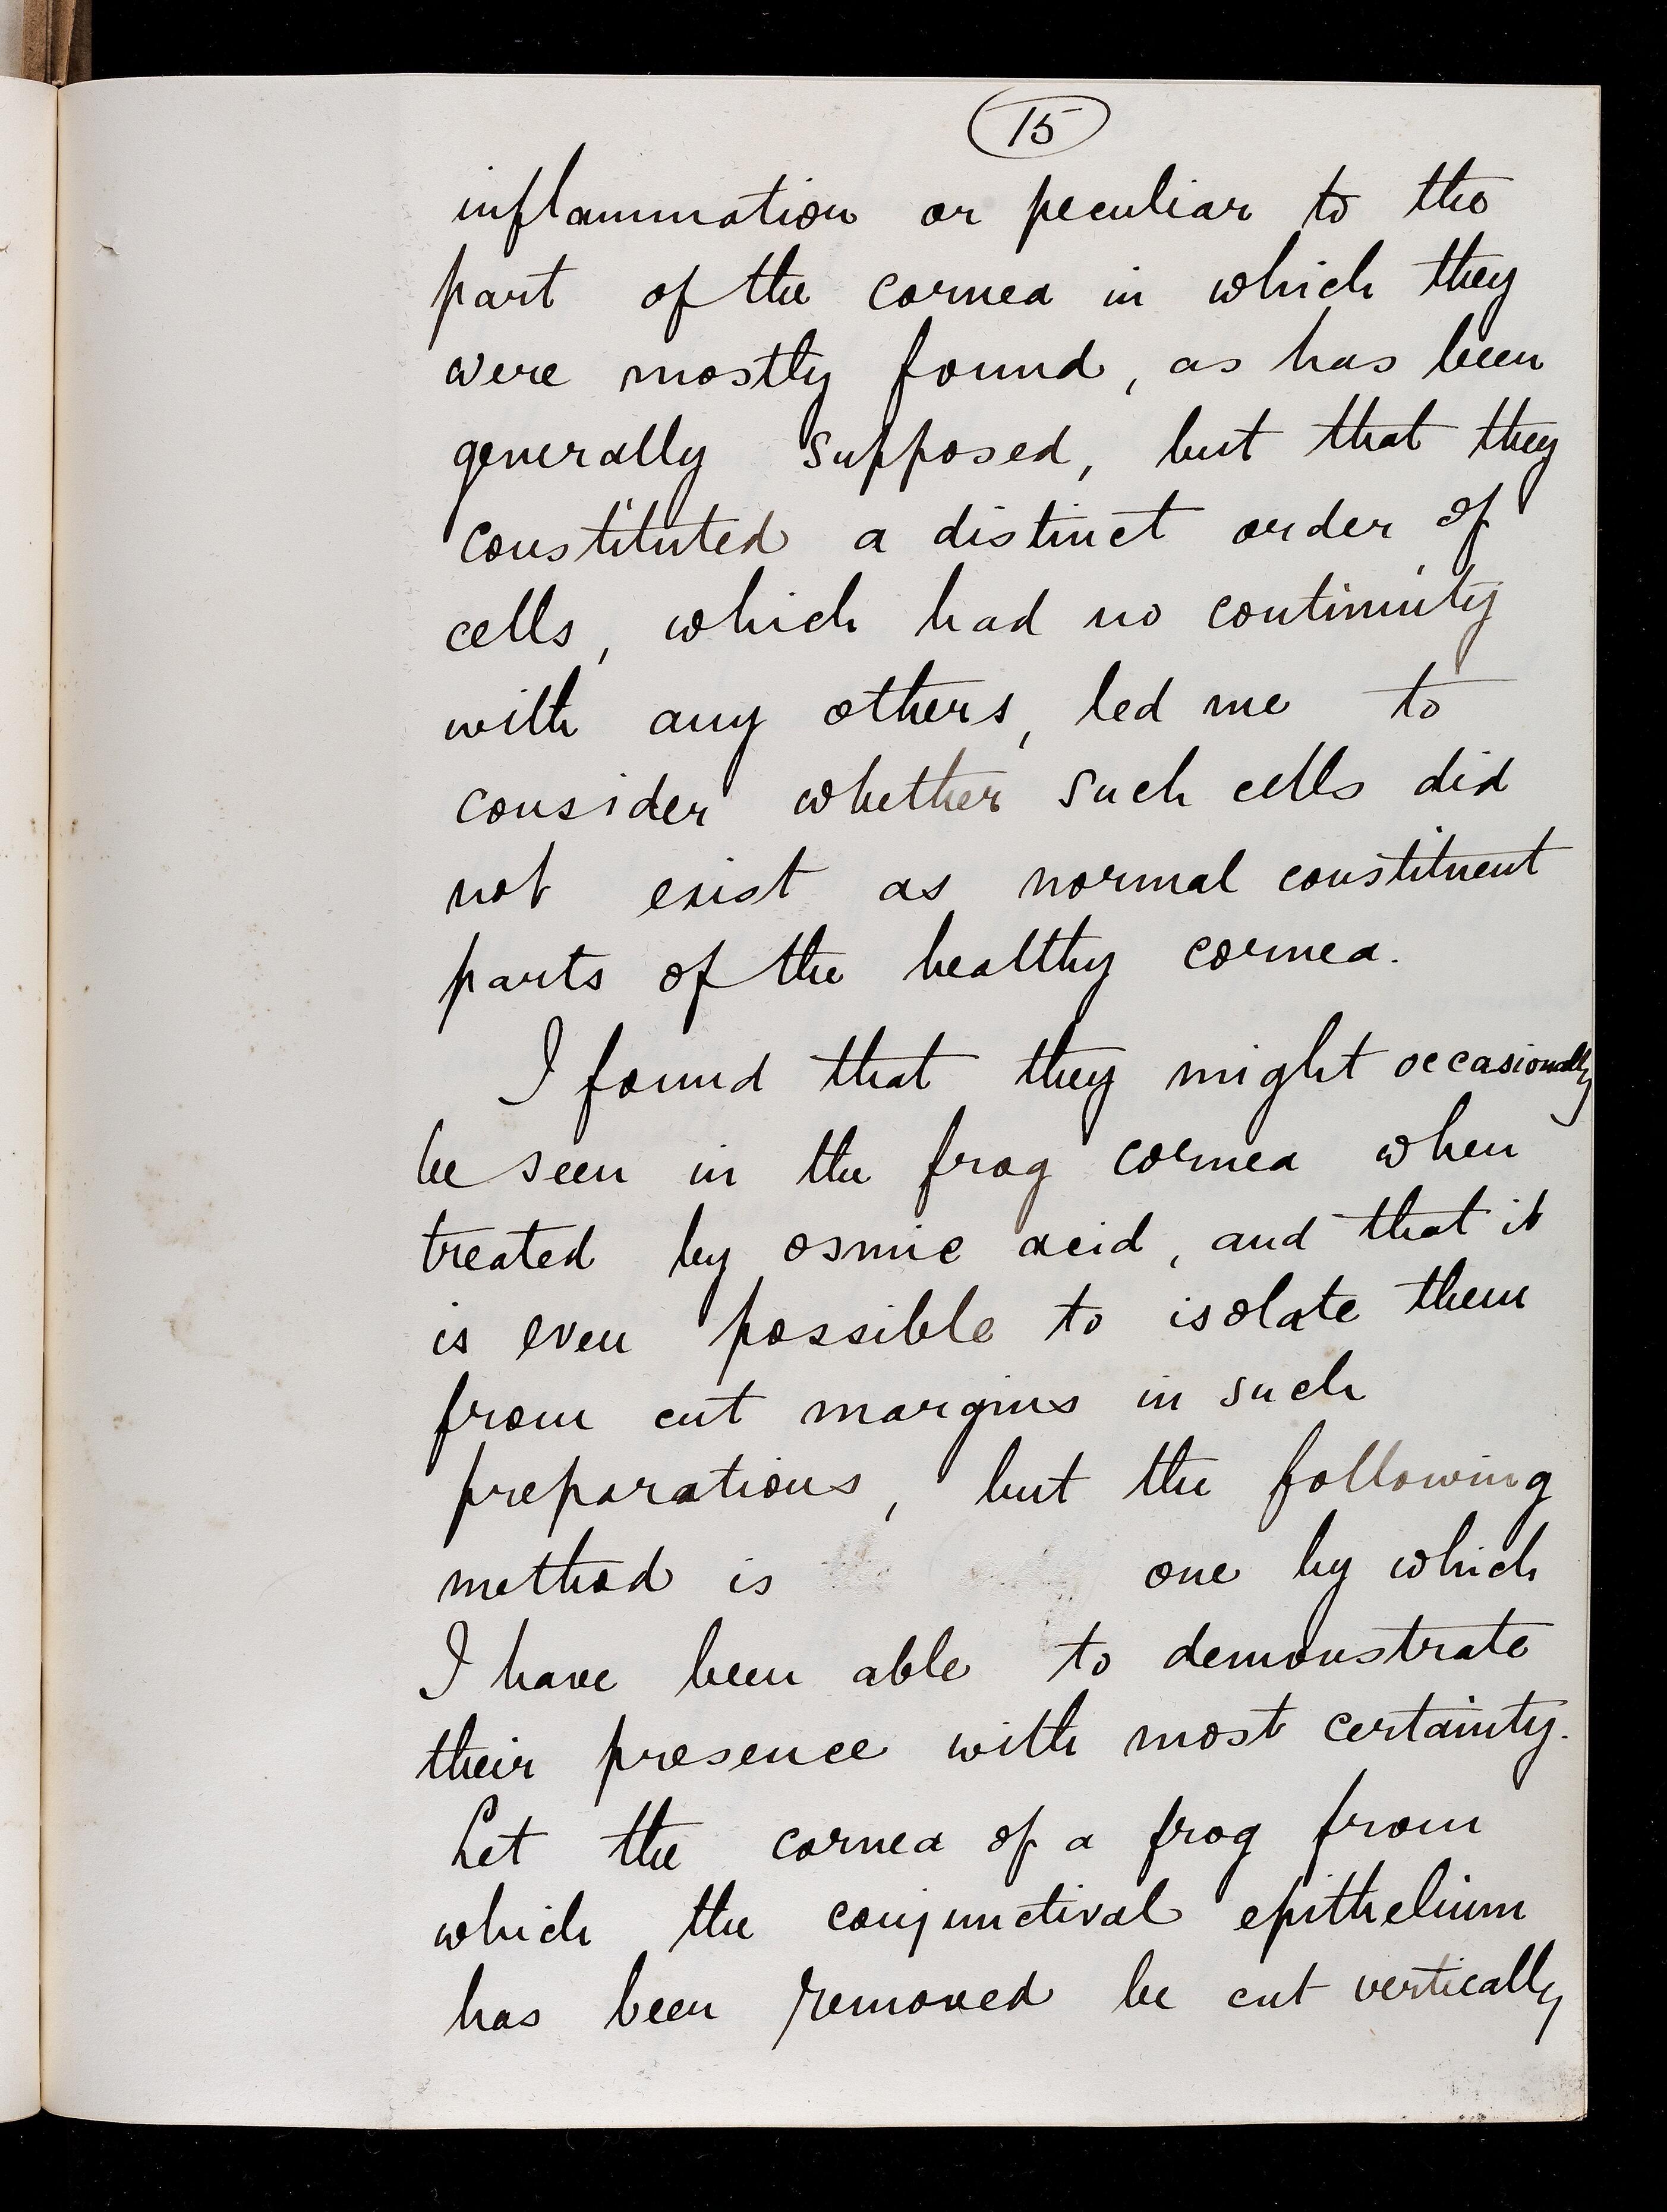 15
inflammation or peculiar to the
part of the cornea in which they
were mostly found, as has been
generally supposed, but that they
constituted a distinct order of
cells, which had no continuity
with any others, led me to
consider whether such cells did
not exist as normal constituent
parts of the healthy cornea.
I found that they might occasionally
be seen in the frog cornea when
treated by osmic acid, and that it
is even possible to isolate them
from cut margins in such
preparations, but the following
method is one by which
I have been able to demonstrate
their presence with most certainty.
Let the cornea of a frog from
which the conjunctival epithelium
has been removed be cut vertically